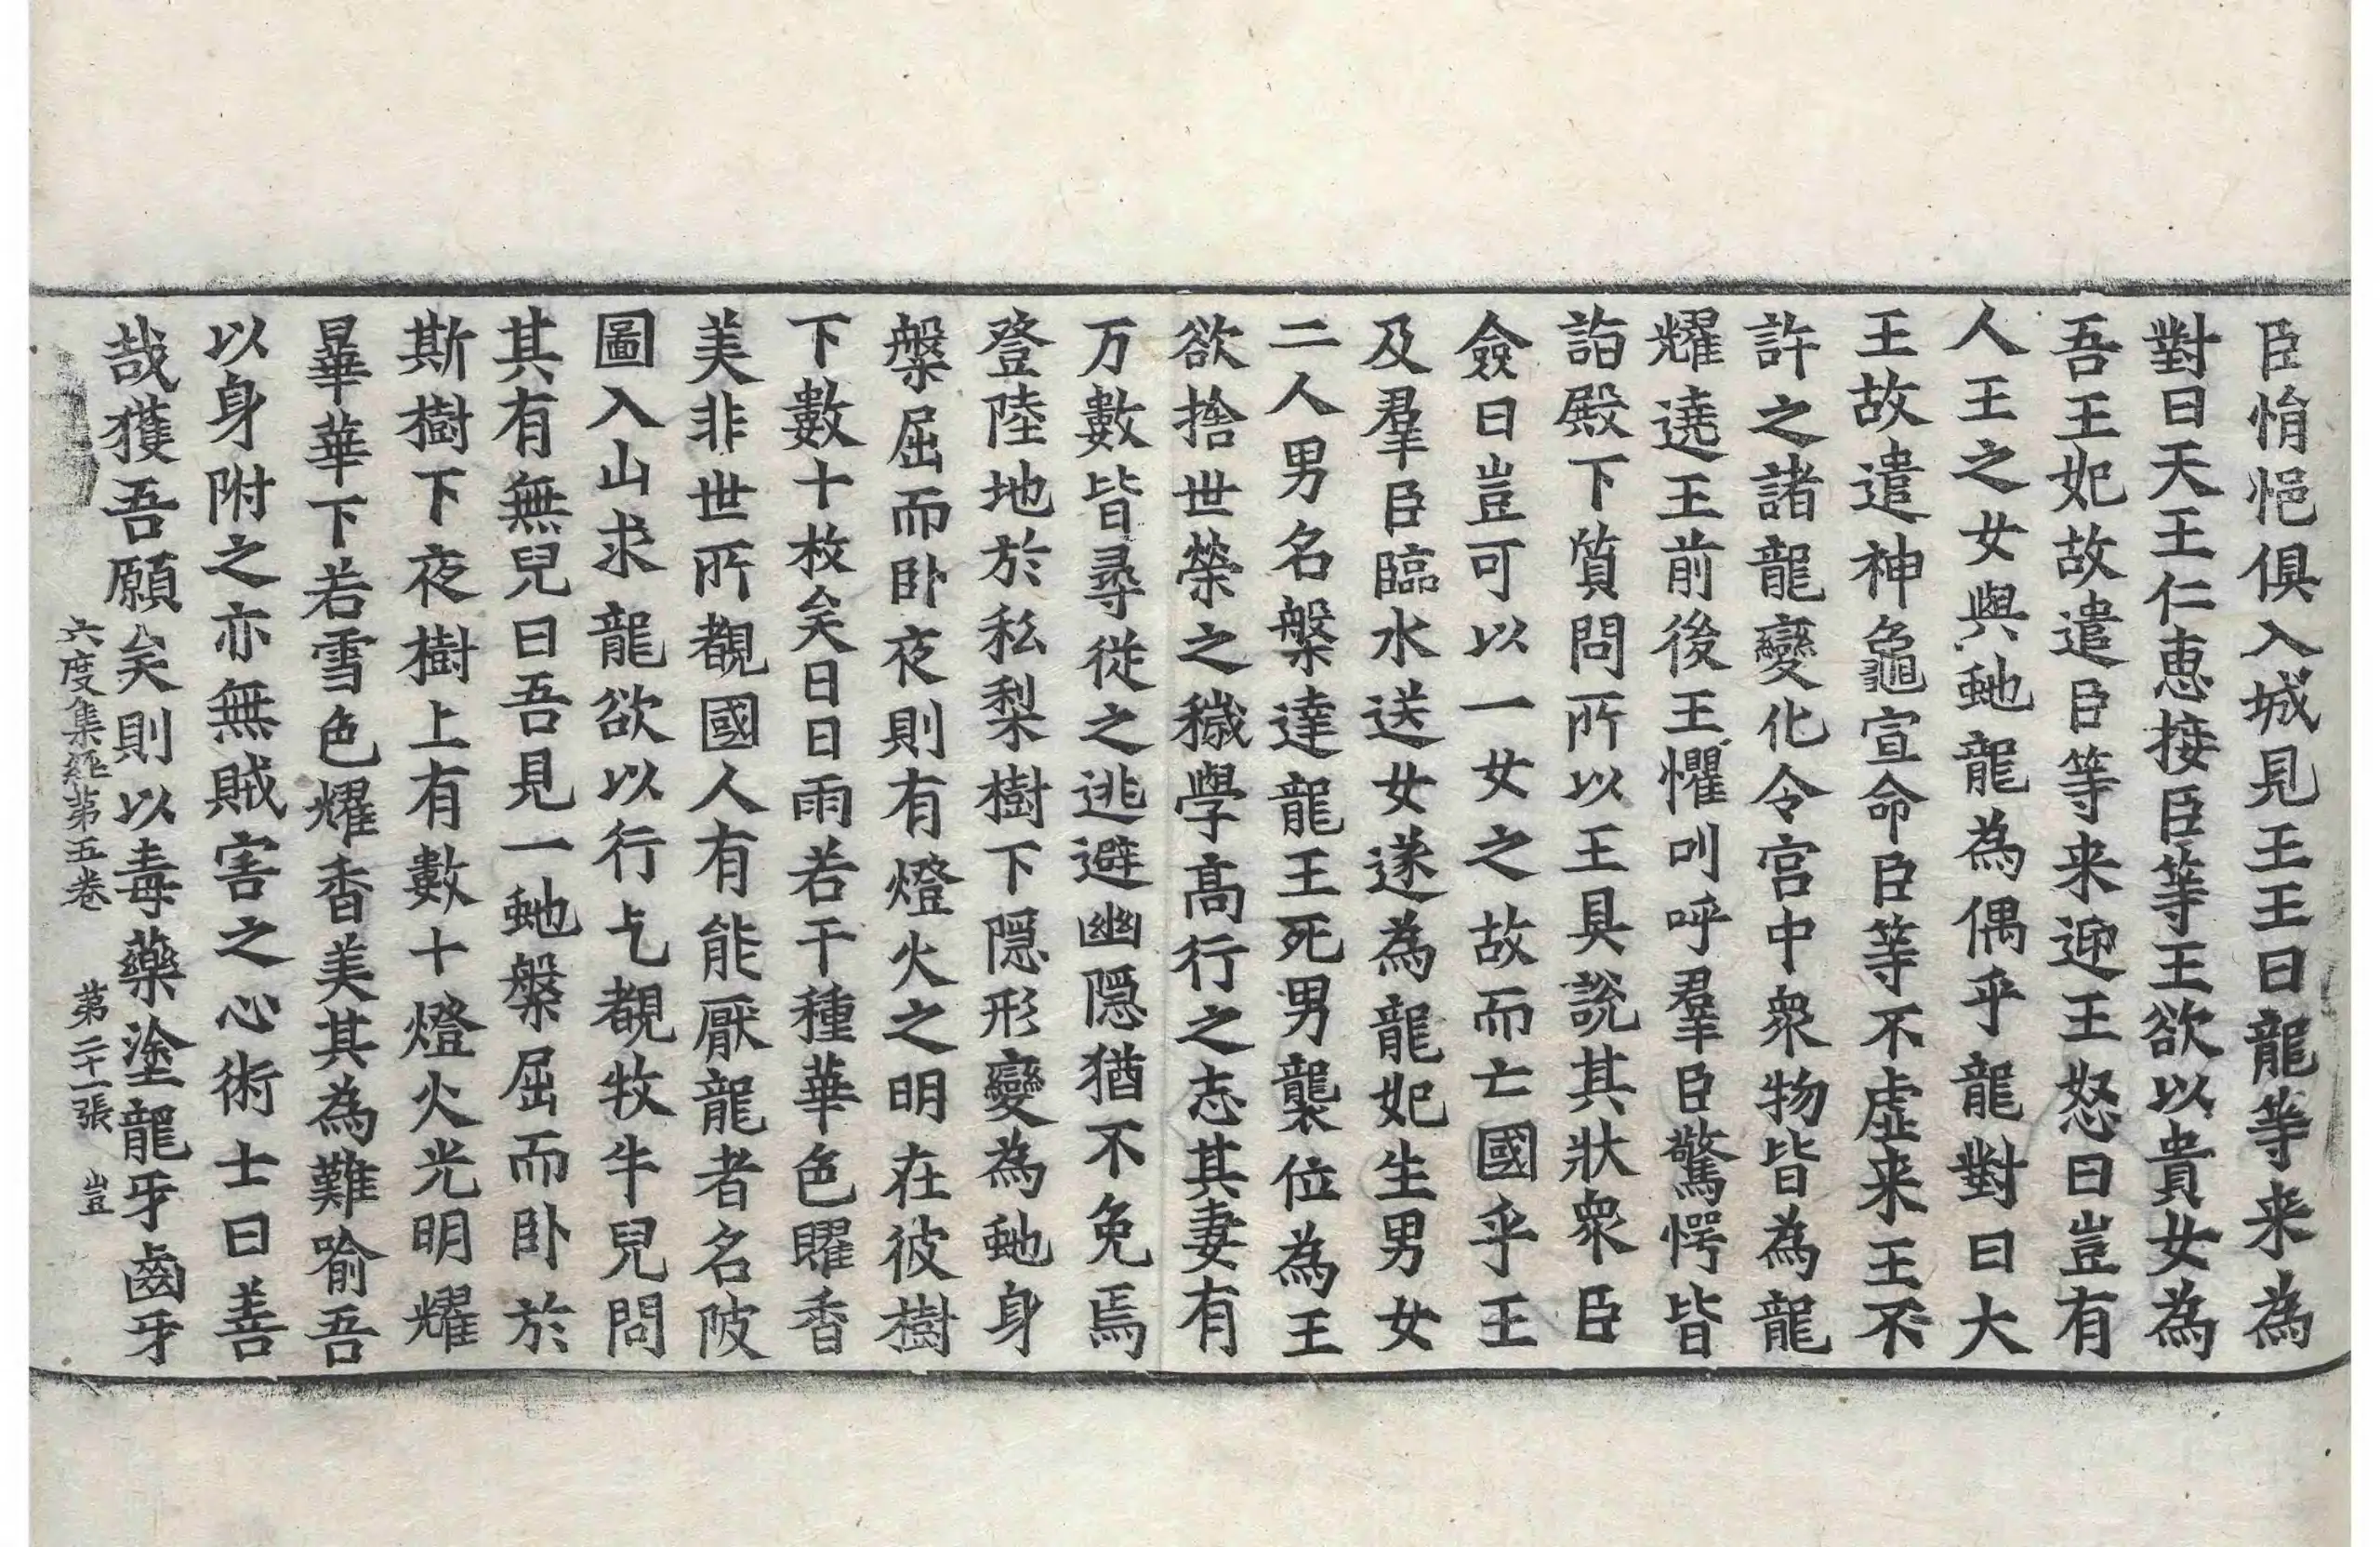 臣悄悒俱入城見王王曰龍等来為
對曰天王仁惠接臣等王欲以貴女為
吾王妃故遣臣等来迎王怒曰豈有
人王之女與虵龍為偶乎龍對曰大
王故遣神龜宣命臣等不虛来王不
許之諸龍變化令宮中衆物皆為龍
耀遶王前後王懼叫呼羣臣驚愕皆
詣殿下質問所以王具說其狀衆臣
僉曰豈可以一女之故而亡國乎王
及羣臣臨水送女遂為龍妃生男女
二人男名槃達龍王死男襲位為王
欲捨世榮之穢學高行之志其妻有
万數皆尋從之逃避幽隱猶不免焉
登陸地於私梨樹下隱形變為虵身
槃屈而卧夜則有燈火之明在彼樹
下數十枚矣日日雨若干種華色曜香
美非世所覩國人有能厭龍者名陂
圖入山求龍欲以行乞覩牧牛兒問
其有無兒曰吾見一虵槃屈而卧於
斯樹下夜樹上有數十燈火光明耀
曅華下若雪色耀香美其為難喻吾
以身附之亦無賊害之心術士曰善
哉獲吾願矣則以毒藥塗龍牙齒牙
六度集經第五卷 第二十一張 豈